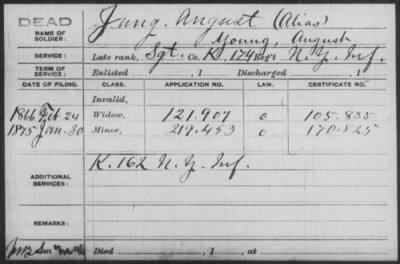 DEAD
NAME OF SOLDIER: Jung, August (Alias)
Young, August
SERVICE: Late rank, Sgt. Co. K, 174 Reg't N.Y. Inf.
TERM OF SERVICE: Enlisted , 1 Discharged , 1
DATE OF FILING. CLASS. APPLICATION NO. LAW. CERTIFICATE NO.
Invalid,
1866 Feb 24 Widow, 121.907 o 105.835
1875 Jan. 30 Minor, 217.453 o 170.825
ADDITIONAL SERVICES: K. 162 N.Y. Inf.
REMARKS:
Died , 1 , at